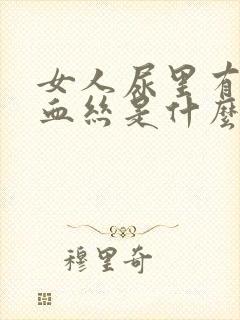 女人尿里有
血丝是什麼
穆里奇